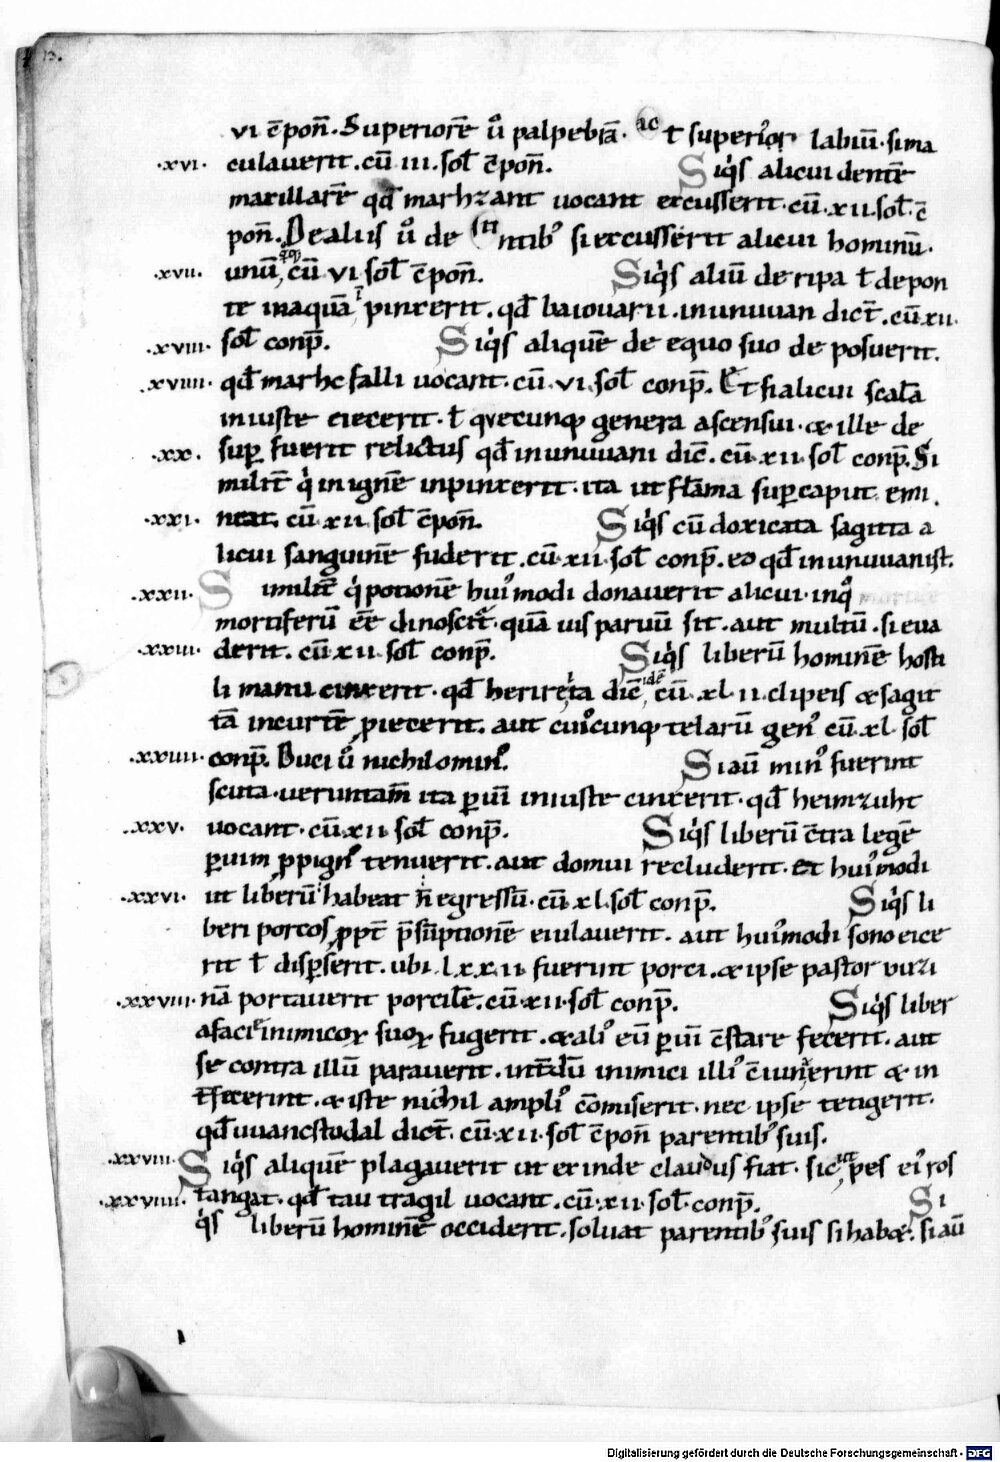 13.
vi c̄poñ. Superiorē ů palpebrā. ac ł superior labiū. si ma
.xvi. culaverit. cū iii. soł c̄poñ. Siq̇s alicui dentē
maxillarē qđ marhzant vocant excusserit. cū. xii. soł. c̄
poñ. De aliis ů de sti ntib' si excusserit alicui hominū.
.xvii. unū, cū vi soł c̄poñ. Siq̇s aliū de ripa ł de pon
te in aquā īpinxerit. qđ baiouarii. inunuuan dict̄. cū xii.
.xviii. soł conp̄. Siq̇s aliquē de equo suo deposuerit.
.xviiii. qđ marhcfalli vocant. cū. vi. soł conp̄. Et si alicui scalā
iniuste eiecerit. ł quecunq; genera ascensui. & ille de
.xx. sup fuerit relictus qđ inunuuani dic̄. cū. xii. soł conp̄. Si
milit̄ q̇ in ignē inpinxerit. ita ut flāma sup caput emi
.xxi. neat. cū. xii. soł c̄poñ. Siq̇s cū doxicata sagitta a
licui sanguinē fuderit. cū. xii. soł conp̄. eo qđ inunuuanist.
.xxii. Similit̄ q̇ potionē hui'modi donaverit alicui. inq̊
mortiferū ēē dinoscit̄. quā vis parvū sit. aut multū. si eva
.xxiii. derit. cū xii soł conp̄. Siq̇s liberū hominē hosti
li manu cinxerit. qđ herireita dic̄, idē cū. xl. ii. clipeis & sagit
tā in curtē piecerit. aut cuiocunq; telarū gen' cū. xl. soł
.xxiiii. conp̄. Duci ů nichilomin'. Si aū min' fuerint
scuta. veruntam̄ ita p uim iniuste cinxerit. qđ heimzuht
.xxv. vocant. cū. xii. soł conp̄. Siq̇s liberū c̄tra legē
p uim ppign' tenuerit. aut domui recluderit. et hui'modi
.xxvi. ut liberū habeat n̄ egressū. cū. xl. soł conp̄. Siq̇s li
beri porcos, ppt̄ p̄sūptionē eiulaverit. aut hui'modi sono eice
rit ł dispserit. ubi. lxxii. fuerint porci. & ipse pastor vuzi
.xxvii. nā portaverit porcilē. cū. xii. soł conp̄. Siq̇s liber
a facie inimicoꝝ suoꝝ fugerit. & ali' eū p uim c̄stare fecerit. aut
se contra illū paraverit. int̄dū inimici illi' c̄iunxerint & in
t̄fecerint. & iste nichil ampli' cōmiserit. nec ipse tetigerit.
qđ uuancstodal dict̄. cū. xii. soł c̄poñ parentib' suis.
.xxviii. Siq̇s aliquē plagaverit ut exinde claudus fiat. sic, ut pes ei' ros
.xxviiii. tangat. qđ tautragil vocant. cū. xii. soł. conp̄. Si
q̇s liberū hominē occiderit. solvat parentib' suis si hab&. si aū
Digitalisierung gefördert durch die Deutsche Forschungsgemeinschaft - DFG